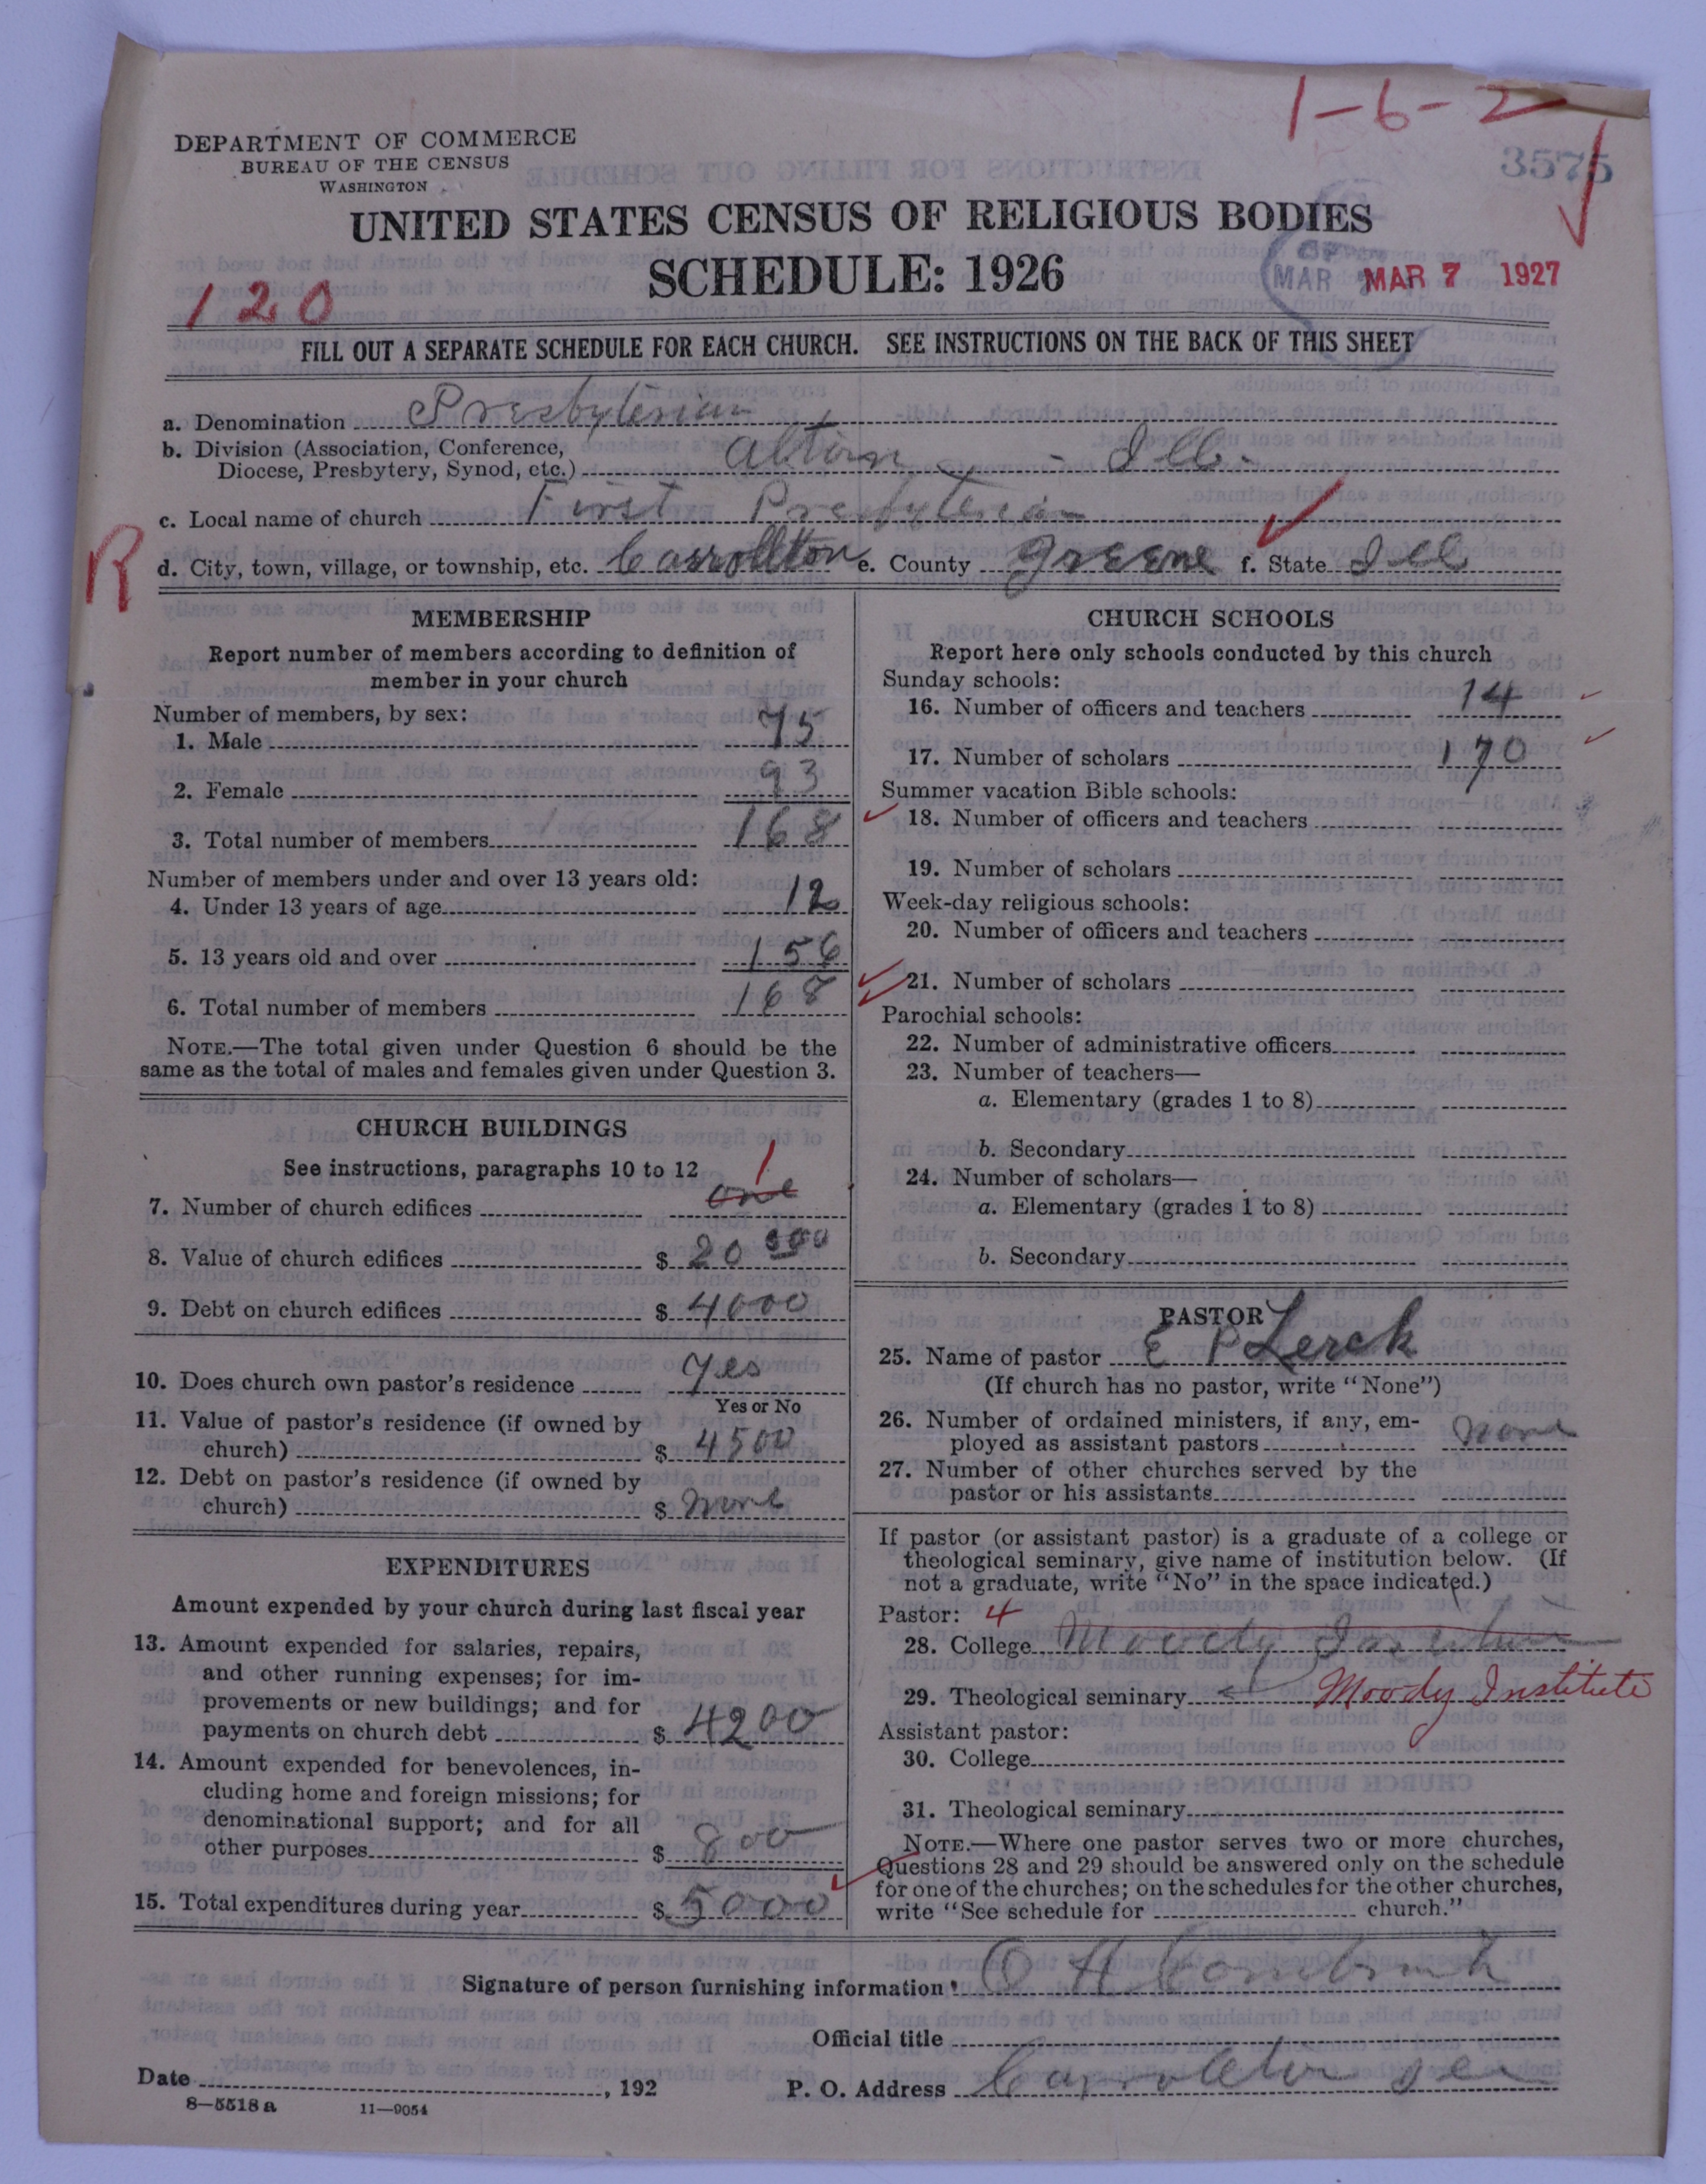 1-6-2
3575
DEPARTMENT OF COMMERCE
BUREAU OF THE CENSUS
WASHINGTON
UNITED STATES CENSUS OF RELIGIOUS BODIES
SCHEDULE: 1926
MAR MAR 7 1927
120
FILL OUT A SEPARATE SCHEDULE FOR EACH CHURCH. SEE INSTRUCTIONS ON THE BACK OF THIS SHEET
a. Denomination Presbyterian
b. Division (Association, Conference,
Diocese, Presbytery, Synod, etc.) Alton - Ill.
c. Local name of church First Presbyterian
R
d. City, town, village, or township, etc. Carrollton e. County Greene f. State Ill
MEMBERSHIP
Report number of members according to definition of
member in your church
Number of members, by sex:
1. Male 75
2. Female 93
3. Total number of members 168
Number of members under and over 13 years old:
4. Under 13 years of age 12
5. 13 years old and over 156
6. Total number of members 168
NOTE.—The total given under Question 6 should be the
same as the total of males and females given under Question 3.
CHURCH BUILDINGS
See instructions, paragraphs 10 to 12
1
7. Number of church edifices one
8. Value of church edifices $ 20 000
9. Debt on church edifices $ 4000
10. Does church own pastor's residence yes
Yes or No
11. Value of pastor's residence (if owned by
church) $ 4500
12. Debt on pastor's residence (if owned by
church) $ none
EXPENDITURES
Amount expended by your church during last fiscal year
13. Amount expended for salaries, repairs,
and other running expenses; for im-
provements or new buildings; and for
payments on church debt $ 4200
14. Amount expended for benevolences, in-
cluding home and foreign missions; for
denominational support; and for all
other purposes $ 800
15. Total expenditures during year $ 5000
CHURCH SCHOOLS
Report here only schools conducted by this church
Sunday schools:
16. Number of officers and teachers 14
17. Number of scholars 170
Summer vacation Bible schools:
18. Number of officers and teachers
19. Number of scholars
Week-day religious schools:
20. Number of officers and teachers
21. Number of scholars
Parochial schools:
22. Number of administrative officers
23. Number of teachers—
a. Elementary (grades 1 to 8)
b. Secondary
24. Number of scholars—
a. Elementary (grades 1 to 8)
b. Secondary
PASTOR
25. Name of pastor E P Lerch
(If church has no pastor, write "None")
26. Number of ordained ministers, if any, em-
ployed as assistant pastors none
27. Number of other churches served by the
pastor or his assistants
If pastor (or assistant pastor) is a graduate of a college or
theological seminary, give name of institution below. (If
not a graduate, write "No" in the space indicated.)
Pastor: 4
28. College Moody Institute
29. Theological seminary Moody Institute
Assistant pastor:
30. College
31. Theological seminary
NOTE.—Where one pastor serves two or more churches,
Questions 28 and 29 should be answered only on the schedule
for one of the churches; on the schedules for the other churches,
write "See schedule for church."
Signature of person furnishing information O H
Official title
Date , 192
P. O. Address Carrollton Ill
8—5518 a 11—9054